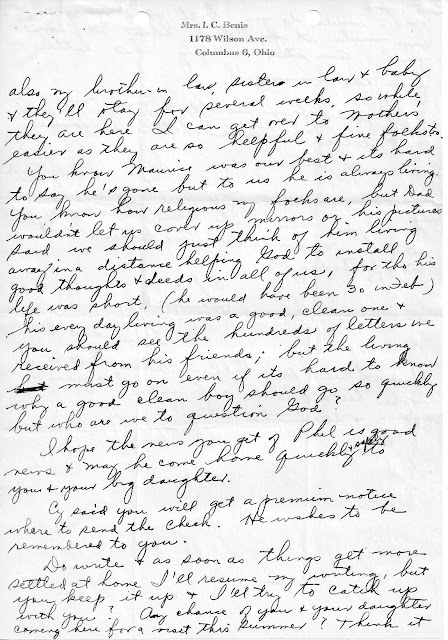 Mrs. I. C. Benis
1178 Wilson Ave.
Columbus 6, Ohio
also my brother-in law, sister in law & baby
& they'll stay for several weeks, so while
they are here I can get over to Mothers
easier as they are so helpful & fine folks too.
You know Maurice was our best & its hard
to say he's gone but to us he is always living
You know how religious my folks are, but Dad
wouldn't let us cover up mirrors or his pictures
said we should just think of him living
away in a distance helping God to install
good thoughts & deeds in all of us, for tho his
life was short, (he would have been 30 in Feb)
his every day living was a good, clean one &
you should see the hundreds of letters we
received from his friends; but the living
must go on even if its hard to know
why a good clean boy should go so quickly
but who are we to question God?
I hope the news you get of Phil is good
news & may he come home quickly & safely to
you & your big daughter.
Cy said you will get a premium notice
where to send the check. He wishes to be
remembered to you.
Do write & as soon as things get more
settled at home I'll resume my writing, but
you keep it up & I'll try to catch up
with you? Any chance of you & your daughter
coming here for a visit this summer? Think it